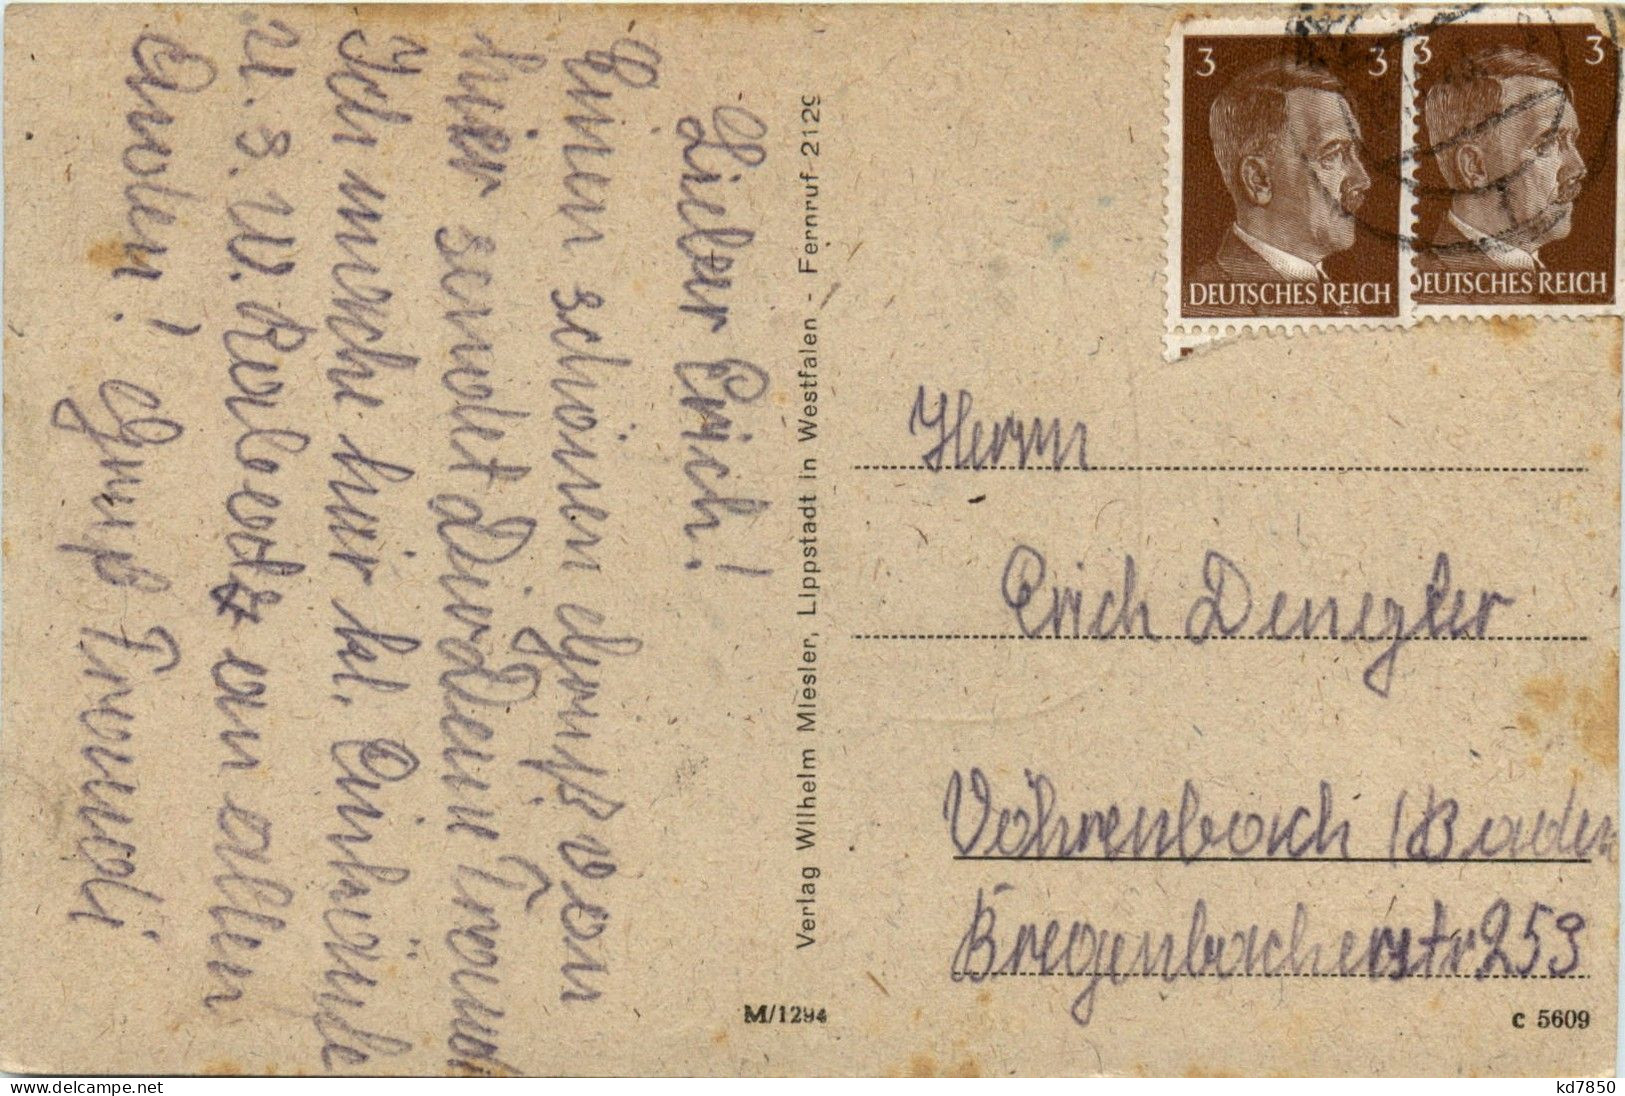 Lieber Erich!
Einen schönen Gruß von
hier sendet Dir Deine Traudi
Ich mache hier hl. Einkäufe
u. s. W. Rabeda an allen
Enden! Gruß Traudi
Verlag Wilhelm Miesler, Lippstadt in Westfalen - Fernruf 2129
3 3
DEUTSCHES REICH
3 3
DEUTSCHES REICH
Herrn
Erich Denegler
Vöhrenbach / Baden
Bregenbacherstr 253
M/1294
c 5609
kd7850